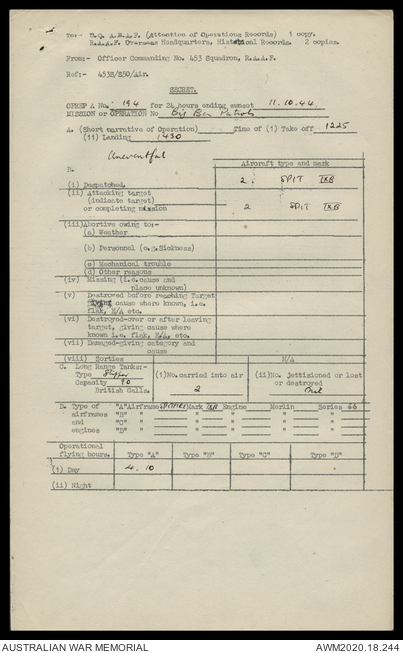 To:- H.Q. A.D.G.B. (Attention of Operations Records) 1 copy.
R.A.A.F. Overseas Headquarters, Historical Records. 2 copies.
From:- Officer Commanding No. 453 Squadron, R.A.A.F.
Ref:- 453S/S30/Air.
SECRET.
OPREP A No. 194 for 24 hours ending sunset 11.10.44
MISSION or OPERATION No Big Ben Patrol
A. (Short narrative of Operation) Time of (1) Take off 1225
(11) Landing 1430
Uneventful
B. Aircraft type and mark
(i) Despatched 2 SPIT IXB
(ii) Attacking target
(indicate target)
or completing mission 2 SPIT IXB
(iii) Abortive owing to:-
(a) Weather
(b) Personnel (e.g. Sickness)
(c) Mechanical trouble
(d) Other reasons
(iv) Missing (i.e. cause and
place unknown)
(v) Destroyed before reaching Target
giving cause where known, i.e.
flak, E/A etc.
(vi) Destroyed-over or after leaving
target, giving cause where
known i.e. flak, E/A, etc.
(vii) Damaged-giving category and
cause
(viii) Sorties N/A
C. Long Range Tanks:-
Type Slipper (i) No. carried into air (ii) No. jettisoned or lost
Capacity 90 or destroyed
British Galls. 2 Nil
D. Type of "A" Airframe SPITFIRE Mark IXB Engine Merlin Series 66
airframes "B" " " " " "
and "C" " " " " "
engines "D" " " " " "
Operational
flying hours. Type "A" Type "B" Type "C" Type "D"
(i) Day 4.10
(ii) Night
AUSTRALIAN WAR MEMORIAL AWM2020.18.244